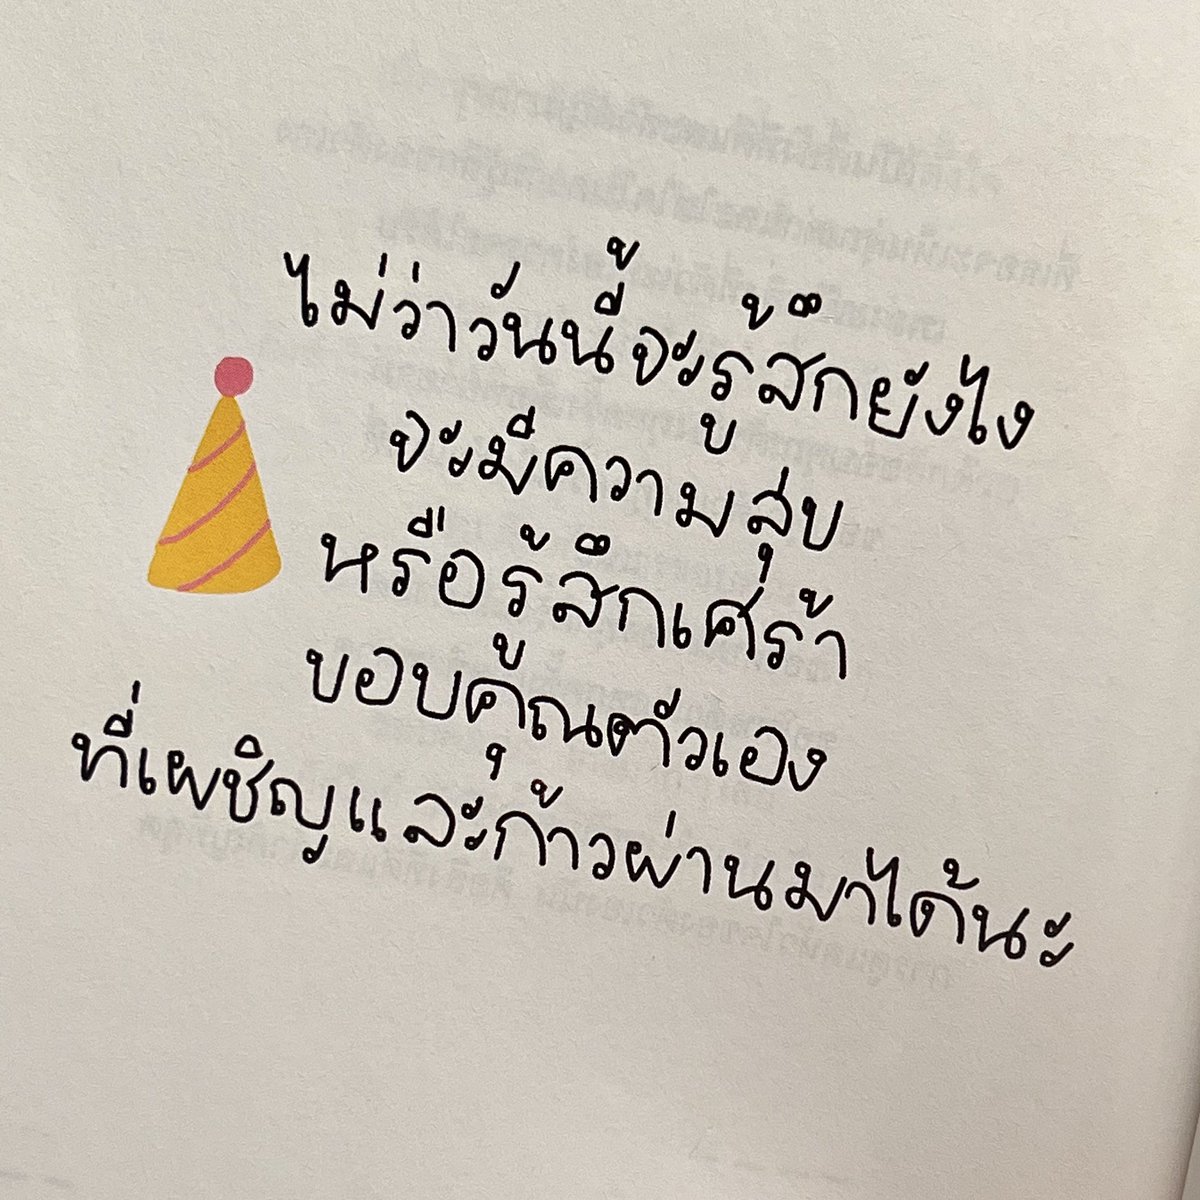 ไม่ว่าวันนี้จะรู้สึกยังไง
จะมีความสุข
หรือรู้สึกเศร้า
ขอบคุณตัวเอง
ที่เผชิญและก้าวผ่านมาได้นะ